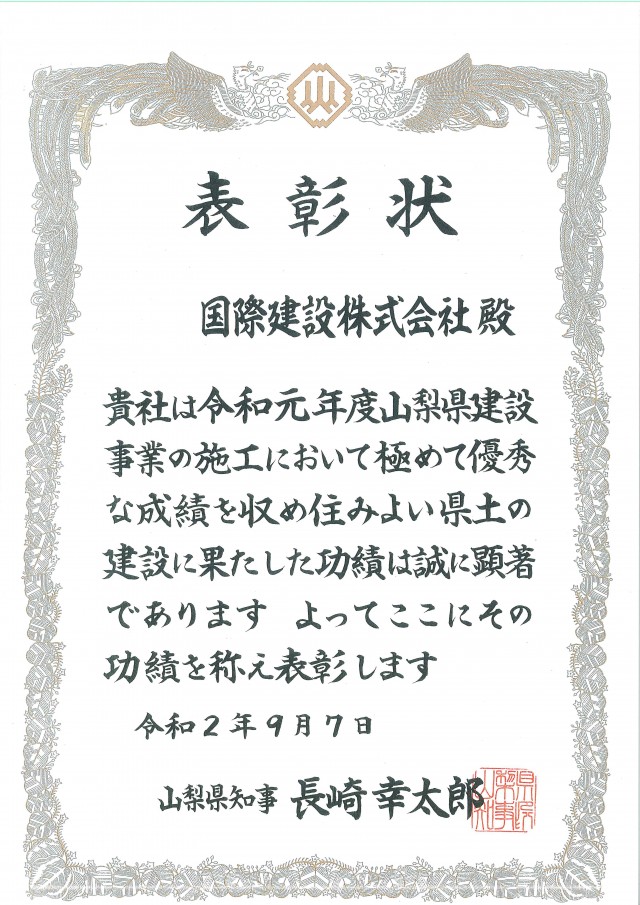 山
表彰状
国際建設株式会社 殿
貴社は令和元年度山梨県建設
事業の施工において極めて優秀
な成績を収め住みよい県土の
建設に果たした功績は誠に顕著
であります よってここにその
功績を称え表彰します
令和2年9月7日
山梨県知事 長崎幸太郎